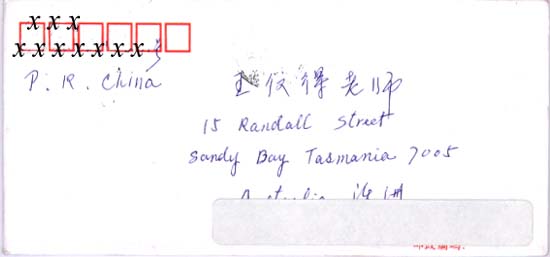 x x x
x x x x x x x
P. R. China
王俊得老师
15 Randall Street
Sandy Bay Tasmania 7005
Australia 澳洲
邮政编码: